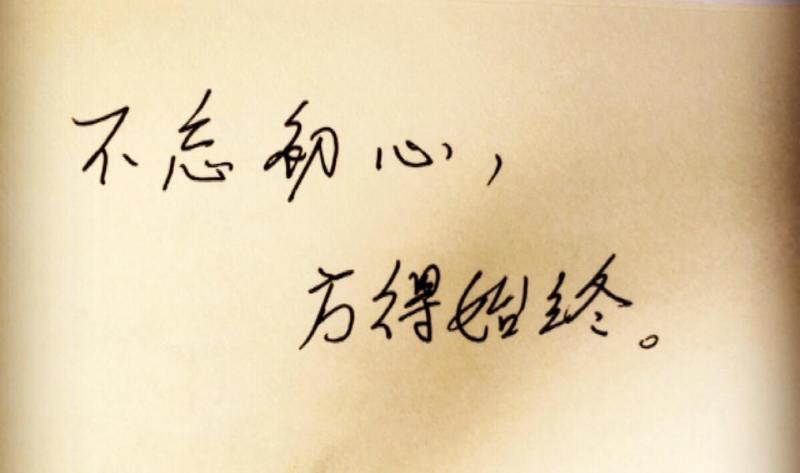 不忘初心，
方得始终。